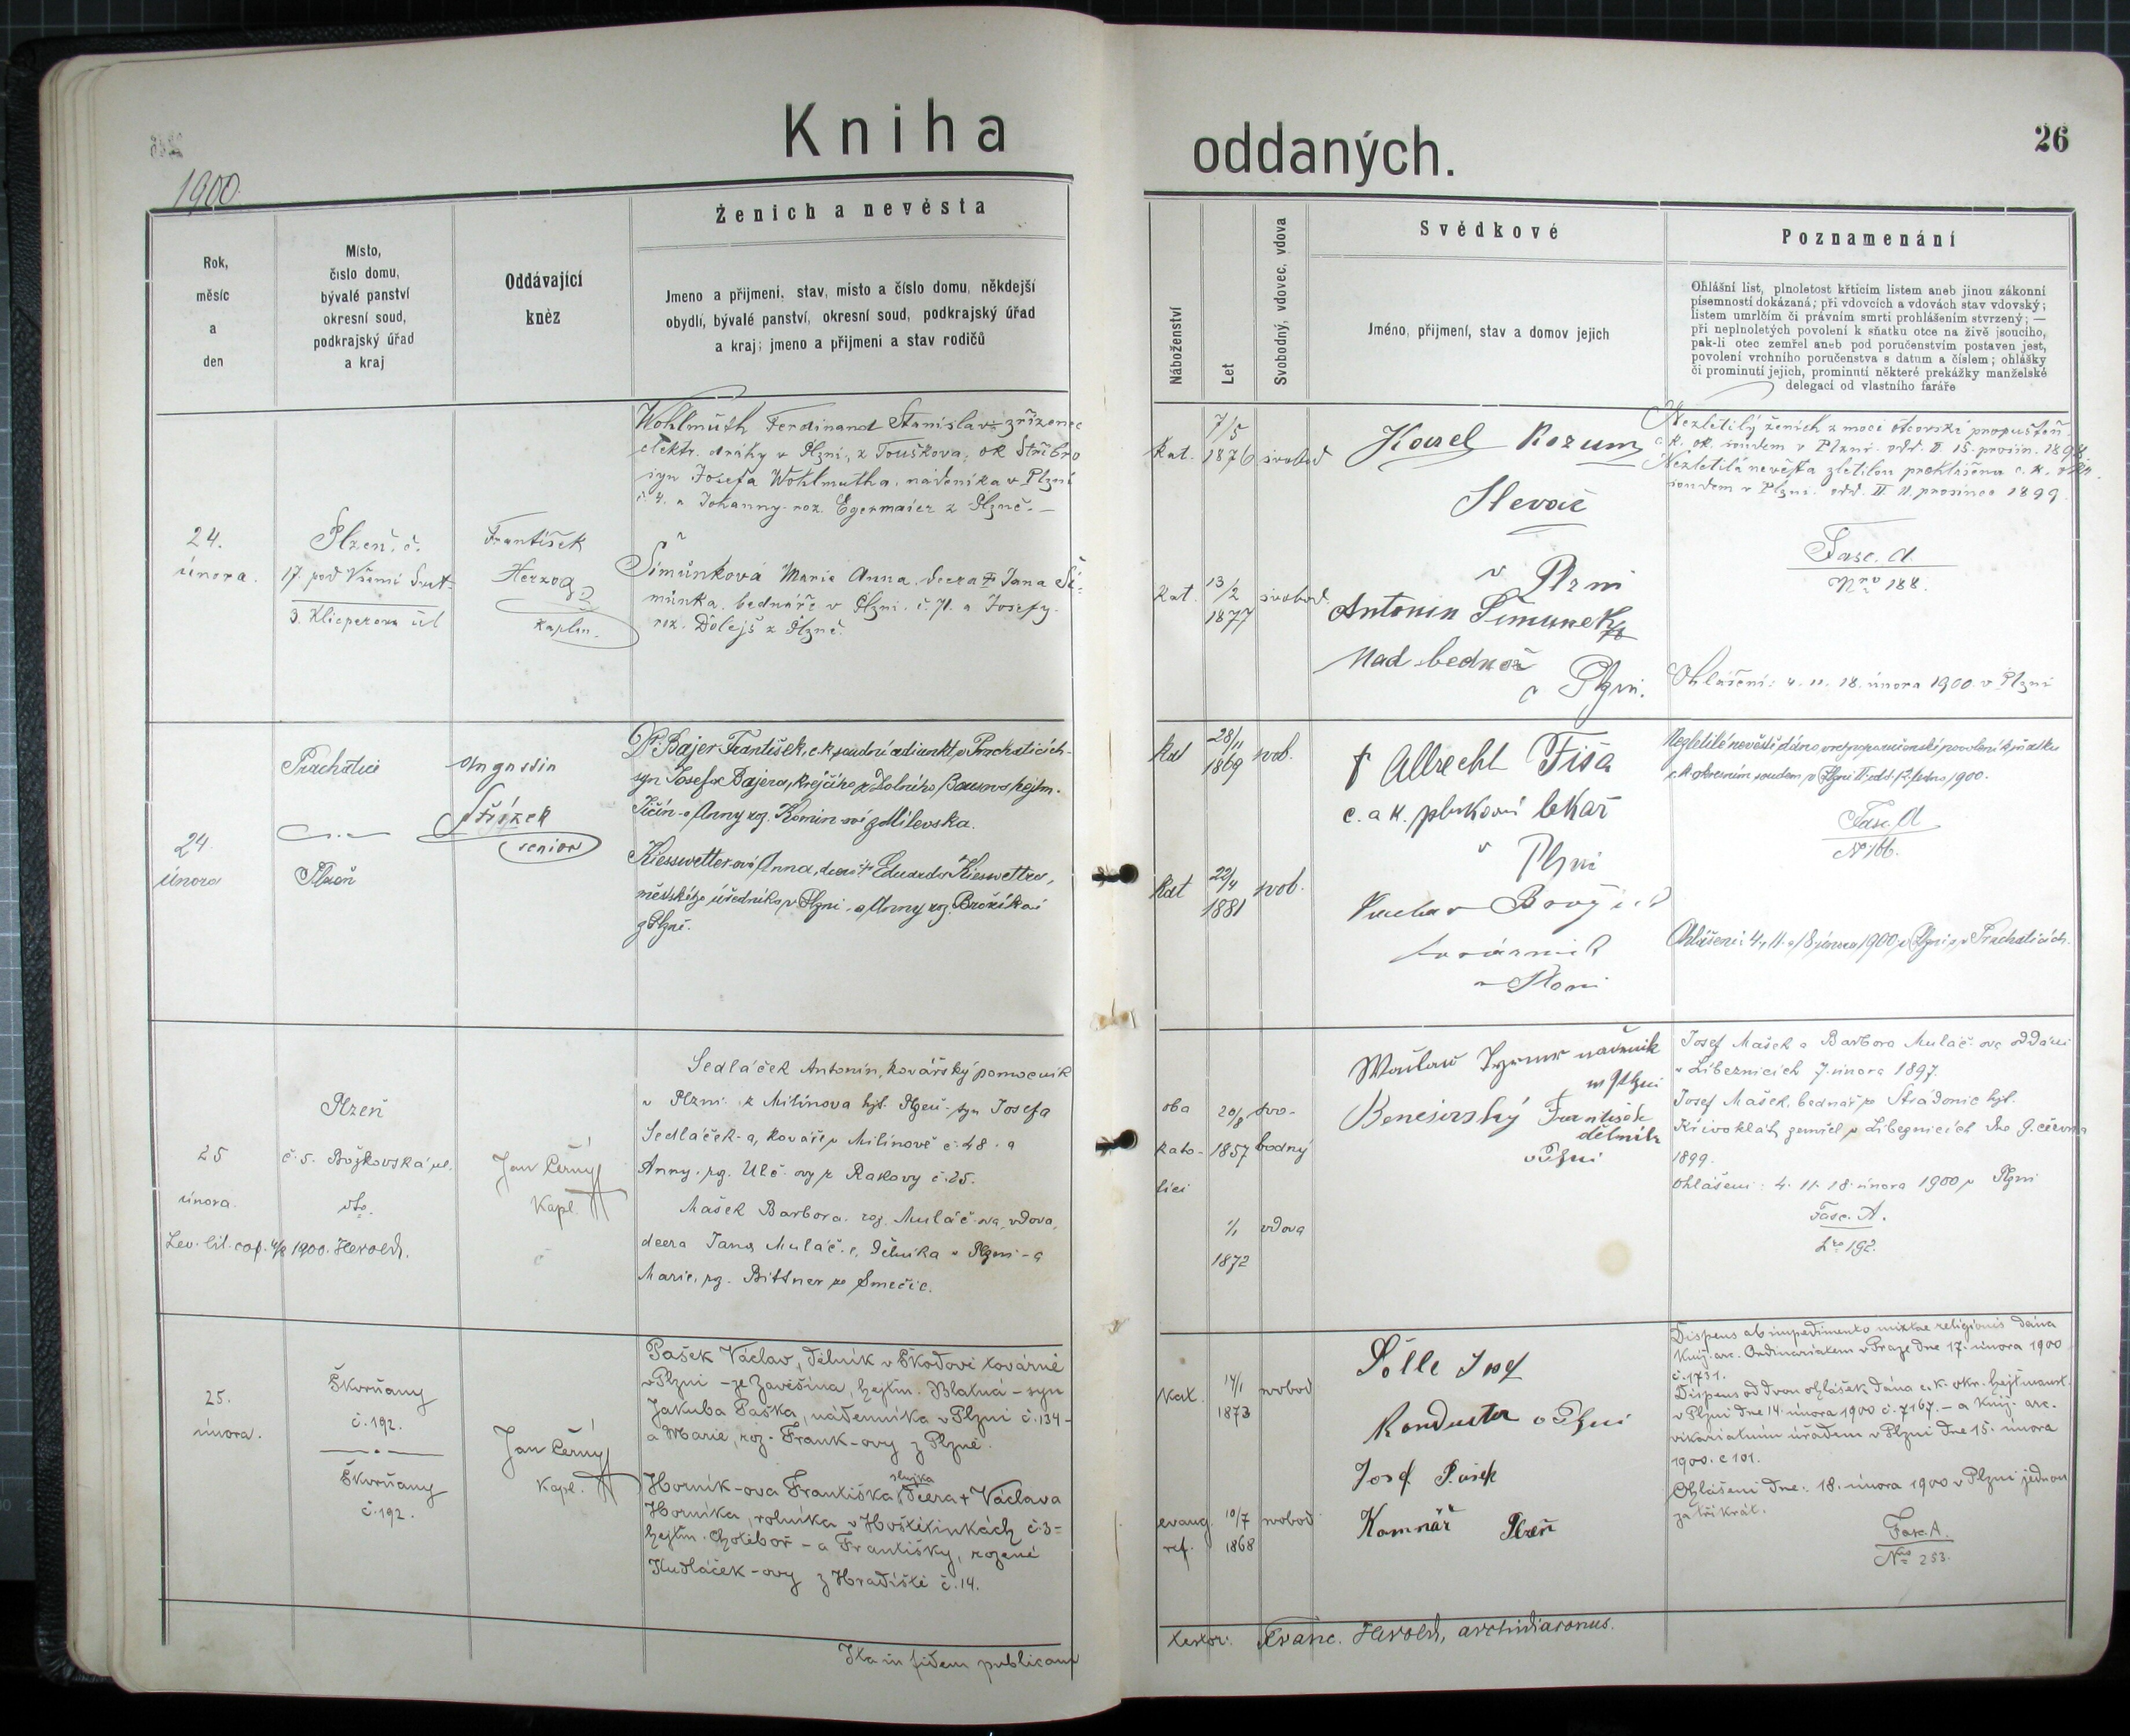 Kniha
oddaných.
26
1900.
Rok,
měsíc
a
den
Místo,
číslo domu,
bývalé panství
okresní soud,
podkrajský úřad
a kraj
Oddávající
kněz
Ženich a nevěsta
Jmeno a přijmení, stav, místo a číslo domu, někdejší
obydlí, bývalé panství, okresní soud, podkrajský úřad
a kraj; jmeno a přijmeni a stav rodičů
Náboženství
Let
Svobodný, vdovec, vdova
Svědkové
Jméno, přijmení, stav a domov jejich
Poznamenání
Ohlášní list, plnoletost křticím listem aneb jinou zákonní
písemností dokázaná; při vdovcích a vdovách stav vdovský;
listem umrlčím či právním smrti prohlášením stvrzený; —
při neplnoletých povolení k sňatku otce na živě jsoucího,
pak-li otec zemřel aneb pod poručenstvím postaven jest,
povolení vrchního poručenstva s datum a číslem; ohlášky
či prominutí jejich, prominutí některé prekážky manželské
delegací od vlastního faráře
24.
února.
Plzeň. č.
17. pod Všemi Svat.
3. Klicperova ul
František
Herzog
kaplan.
Wohlmuth Ferdinand Stanislav zřízenec
elektr. dráhy v Plzni, z Touškova, ok Stříbro
syn Josefa Wohlmutha, nádeníka v Plzni
č. 4. a Johanny roz. Egermaier z Plzně. —
Šimůnková Marie Anna. dcera † Jana Ši-
můnka, bednáře v Plzni. č. 71. a Josefy.
roz. Dolejš z Plzně.
Kat.
7/5
1876
svobod
Kat.
13/2
1877
svobod.
Karel Rozum
Slevač
v Plzni
Antonin Šimunek
v Plzni.
Nezletilý ženich z moci otcovské propuštěn
c. k. ok. soudem v Plzni. odd. II 15. prosin. 1899.
Nezletilá nevěsta zletilou prohlášena c. k. okr.
soudem v Plzni. odd. II. 11. prosince 1899.
Fasc. A.
Nro 188.
Ohlášení: 4. 11. 18. února 1900. v Plzni
24.
února
Prachatice
Plzeň
Augustin
senior
Dr. Bajer František, c. k. soudní adjunkt v Prachaticích -
syn Josefa Bajera, krejčího z Dolního Bousova, hejtm.
Jičín a Anny roz. Komin-ové z Milevska.
Kiesswetter-ová Anna, dcera † Eduarda Kiesswettra,
městského úředníka v Plzni - a Anny roz. Brožíkové
z Plzně.
Kat
28/11
1869
svob.
Kat
22/4
1881
svob.
† Albrecht Fiša
c. a k. plukovní lékař
v Plzni
Nezletilé nevěstě dáno vrchnoporučenské povolení k sňatku
c. k. okresním soudem v Plzni II. odd. 12. ledna 1900.
Fasc. A
No 166.
Ohlášeni: 4., 11. a 18. února 1900 v Plzni a v Prachaticích.
25
února.
Plzeň
č. 5. Božkovská ul.
Lev. lit. cop. 1900. Herold.
Jan Černý
Kapl.
Sedláček Antonín, kovářský pomocník
v Plzni z Milínova hjt. Plzeň - syn Josefa
Sedláček-a, kováře v Milínově č. 48. a
Anny. rz. Ulč-ovy z Rakovy č. 25.
Mašek Barbora. roz. Muláč-ova, vdova,
dcera Jana Muláč-e, dělníka v Plzni - a
Marie, rz. Bittner ze Smečic.
oba
kato-
líci
20/8
1857
svo-
bodný
1/1
1872
vdova
v Plzni
Benešovský František
dělník
v Plzni
Josef Mašek a Barbora Muláč-ova oddáni
v Libeznicích 7. února 1897.
Josef Mašek, bednář ze Strádonic hjt.
Křivoklát, zemřel v Libeznicích dne 9. června
1899.
Ohlášeni: 4. 11. 18. února 1900 v Plzni
Fasc. A.
Nro 192.
25.
února.
Škvrňany
č. 192.
Škvrňany
č. 192.
Jan Černý
Kapl.
Pašek Václav, dělník v Škodově továrně
v Plzni - ze Závěšína, hejtm. Blatná - syn
Jakuba Paška, nádenníka v Plzni č. 134 -
a Marie, roz. Frank-ovy z Plzně.
služka
Horník-ova Františka dcera † Václava
Horníka, rolníka v Hoštětínkách č. 3 -
hejtm. Chotěboř - a Františky, rozené
Kudláček-ovy z Hradiště č. 14.
Kat.
14/1
1873
svobod
evang.
ref.
10/7
1868
svobod
Šölle Josef
Konduktor v Plzni
Josef Pašek
Kamnář Plzeň
Dispens ab impedimento mixtae religionis dána
Kníž. arc. Ordinariatem v Praze dne 17. února 1900
č. 1731.
Dispens od dvou ohlášek dána c. k. okr. hejtmanst.
v Plzni dne 14. února 1900 č. 7167. - a Kníž. arc.
vikariatním úřadem v Plzni dne 15. února
1900. č 101.
Ohlášeni dne: 18. února 1900 v Plzni jednou
za třikrát.
Fasc. A.
Nro 253.
Ita in fidem publicam
testor: Franc. Herold, archidiaconus.